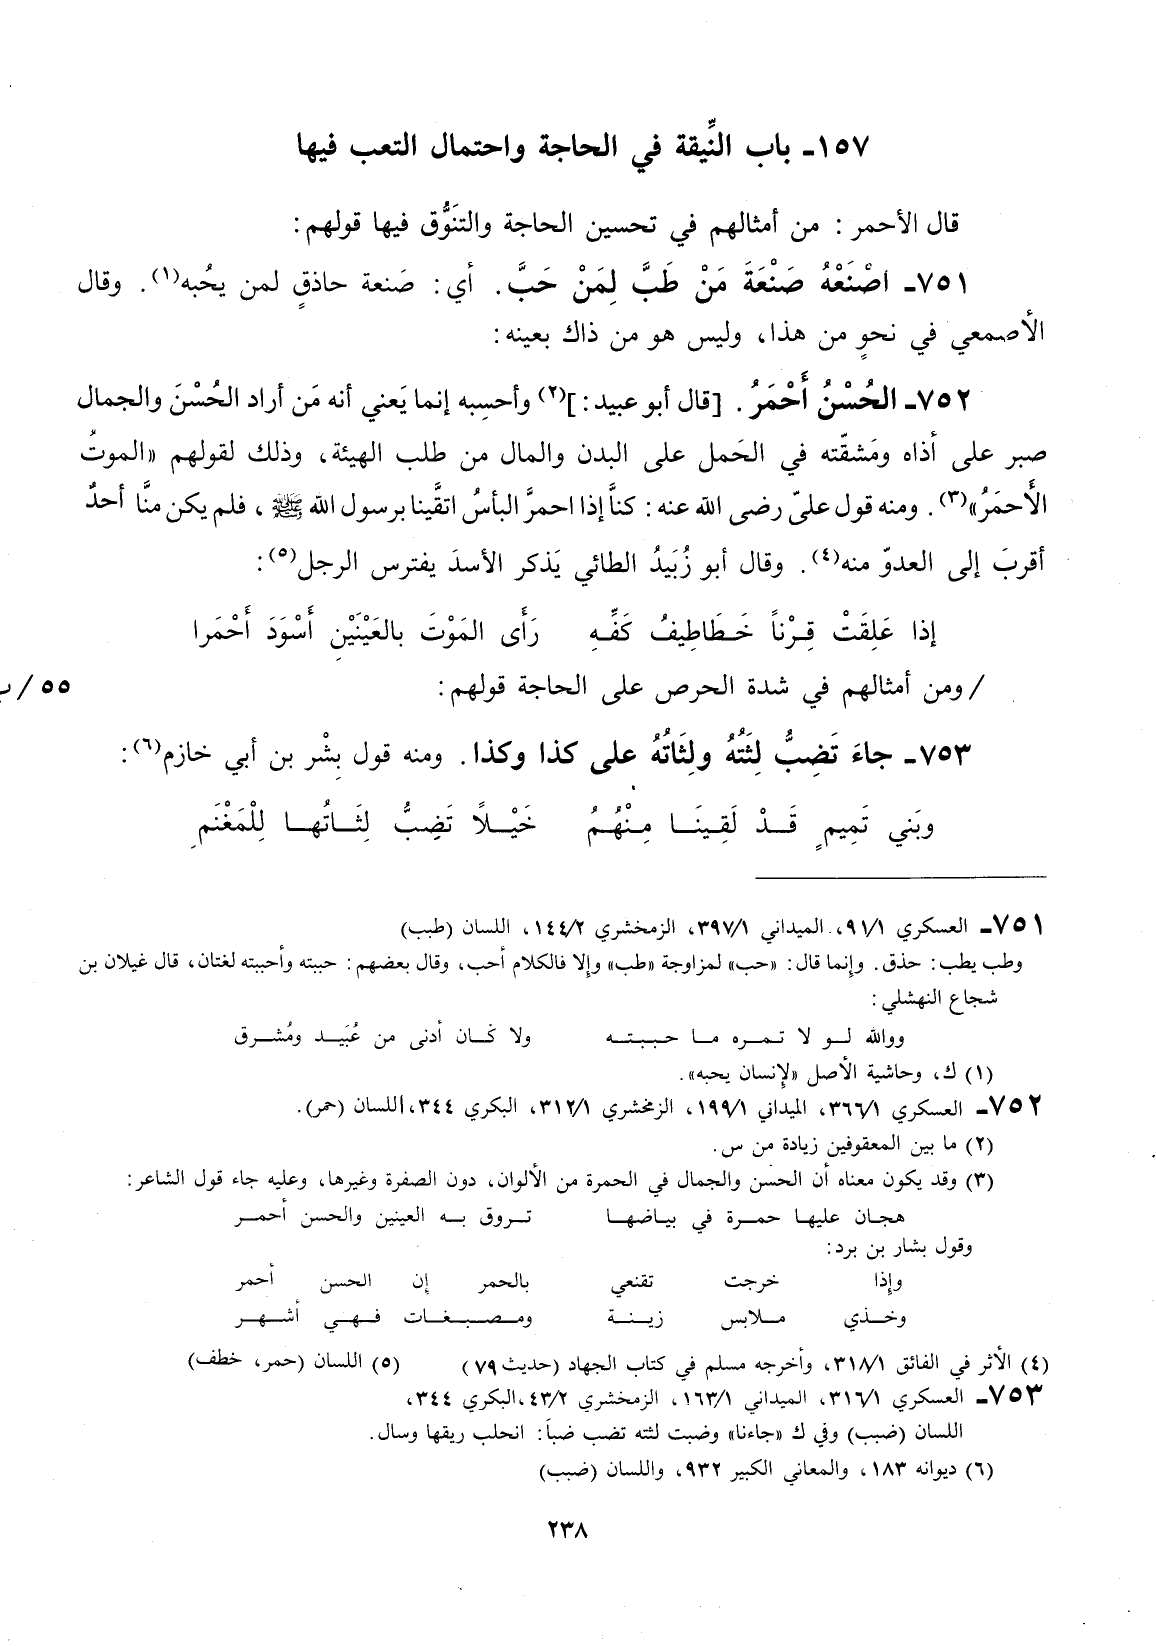 ١٥٧ـ باب النِّيقة في الحاجة واحتمال التعب فيها
قال الأحمر : من أمثالهم في تحسين الحاجة والتنَوُّق فيها قولهم:
٧٥١ـ اصْنَعْهُ صَنْعَةَ مَنْ طَبَّ لِمَنْ حَبَّ. أي: صَنعة حاذقٍ لمن يحُبه(١). وقال
الأصمعي في نحوٍ من هذا، وليس هو من ذاك بعينه:
٧٥٢ـ الحُسْنُ أَحْمَرُ. [قال أبو عبيد:](٢) وأحسِبه إنما يَعني أنه مَن أراد الحُسْنَ والجمال
صبر على أذاه ومَشقّته في الحَمل على البدن والمال من طلب الهيئة، وذلك لقولهم «الموتُ
الأَحمَرُ»(٣). ومنه قول عليّ رضى الله عنه: كنَّا إذا احمرَّ البأسُ اتقَّينا برسول الله ﷺ، فلم يكن منَّا أحدٌ
أقربَ إلى العدوّ منه(٤). وقال أبو زُبَيدُ الطائي يَذكر الأسدَ يفترس الرجل(٥):
إذا عَلِقَتْ قِرْناً خَطَاطِيفُ كَفِّهِ رَأَى المَوْتَ بالعَيْنَيْنِ أَسْوَدَ أَحْمَرا
/ ومن أمثالهم في شدة الحرص على الحاجة قولهم: ٥٥/ب
٧٥٣ـ جاءَ تَضِبُّ لِثَتُهُ ولِثَاتُهُ على كذا وكذا. ومنه قول بِشْر بن أبي خازم(٦):
وبَني تَمِيمٍ قَدْ لَقِينَا مِنْهُمُ خَيْلاً تَضِبُّ لِثَاتُها لِلْمَغْنَمِ
٧٥١ـ العسكري ٩١/١، الميداني ٣٩٧/١، الزمخشري ١٤٤/٢، اللسان (طبب)
وطب يطب: حذق. وإنما قال: «حب» لمزاوجة «طب» وإلا فالكلام أحب، وقال بعضهم: حببته وأحببته لغتان، قال غيلان بن
شجاع النهشلي:
ووالله لو لا تمره ما حببته ولا كَان أدنى من عُبَيد ومُشرق
(١) ك، وحاشية الأصل «لإنسان يحبه».
٧٥٢ـ العسكري ٣٦٦/١، الميداني ١٩٩/١، الزمخشري ٣١٢/١، البكري ٣٤٤، اللسان (حمر).
(٢) ما بين المعقوفين زيادة من س.
(٣) وقد يكون معناه أن الحسن والجمال في الحمرة من الألوان، دون الصفرة وغيرها، وعليه جاء قول الشاعر:
هجان عليها حمرة في بياضها تروق به العينين والحسن أحمر
وقول بشار بن برد:
وإذا خرجت تقنعي بالحمر إن الحسن أحمر
وخذي ملابس زينة ومصبغات فهي أشهر
(٤) الأثر في الفائق ٣١٨/١، وأخرجه مسلم في كتاب الجهاد (حديث ٧٩) (٥) اللسان (حمر، خطف)
٧٥٣ـ العسكري ٣١٦/١، الميداني ١٦٣/١، الزمخشري ٤٣/٢، البكري ٣٤٤،
اللسان (ضبب) وفي ك «جاءنا» وضبت لثته تضب ضباً: انحلب ريقها وسال.
(٦) ديوانه ١٨٣، والمعاني الكبير ٩٣٢، واللسان (ضبب)
٢٣٨